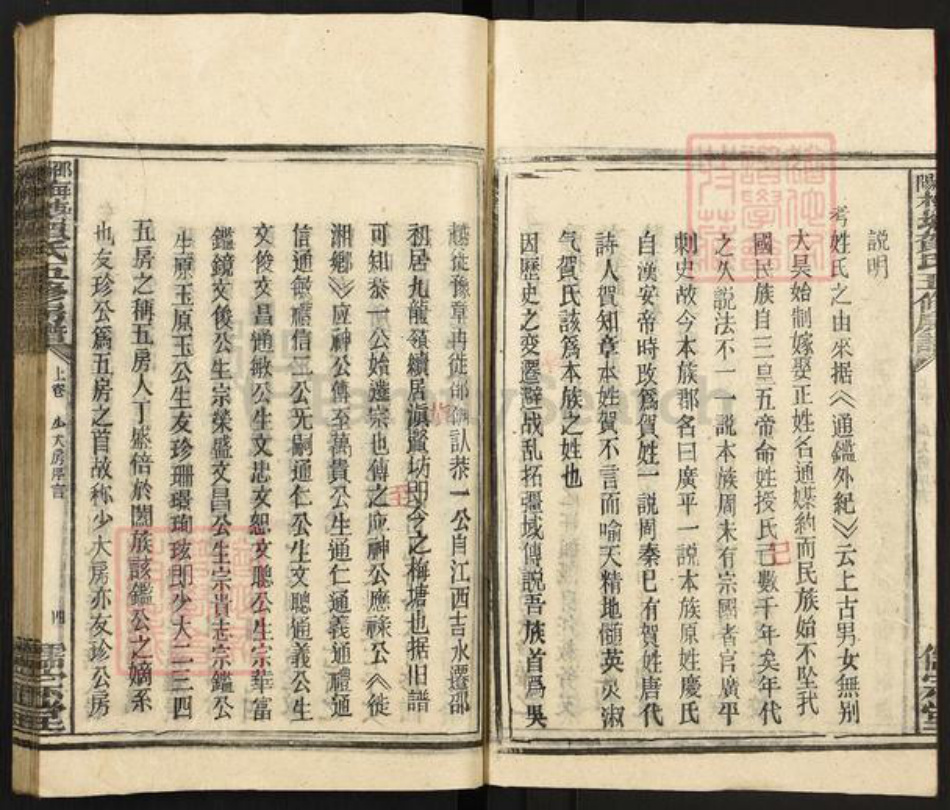 説明
考姓氏之由來据《通鑑外紀》云上古男女無别
大昊始制嫁娶正姓名通媒約而民族始不坠我
國民族自三皇五帝命姓授氏已數千年矣年代
之久説法不一一説本族周末有宗國者官廣平
刺史故今本族郡名曰廣平一説本族原姓慶氏
自漢安帝時改爲賀姓一説周秦已有賀姓唐代
詩人賀知章本姓賀不言而喻天精地髄英灵淑
气賀氏該爲本族之姓也
因歷史之变遷避战乱拓彊域傳説吾族首爲吳
越徒豫章冉徙邵 訙恭一公自江西吉水遷邵
初居九龍嶺續居滇賢坊即今之梅塘也据旧譜
可知恭一公始遷宗也傳之應神公應祿公《徙
湘鄉》应神公傳至萬貴公生通仁通義通禮通
信通敏禮信二公无嗣通仁公生文聰通義公生
文俊文昌通敏公生文忠文恕文聰公生宗華富
鑑鏡文俊公生宗榮盛文昌公生宗貴志宗鑑公
生原玉原玉公生友珍珊璟珣玹即少大二三四
五房之稱五房人丁盛倍於闔族該鑑公之嫡系
也友珍公爲五房之首故称少大房亦友珍公房
上卷 少大房序言
四